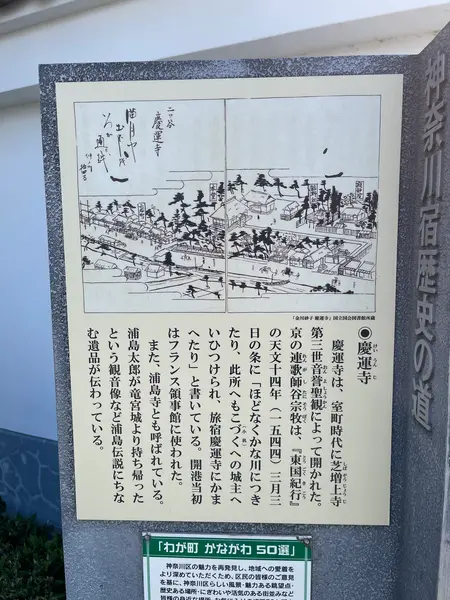 神奈川宿歴史の道
二ツ谷
慶運寺
「金川砂子 慶運寺」国立国会図書館所蔵
◉慶運寺
けいうんじ
慶運寺は、室町時代に芝増上寺
第三世音誉聖観によって開かれた。
京の連歌師谷宗牧は、『東国紀行』
の天文十四年(一五四四)三月三
日の条に「ほどなくかな川につき
たり、此所へもこづくへの城主へ
いひつけられ、旅宿慶運寺にかま
へたり」と書いている。開港当初
はフランス領事館に使われた。
また、浦島寺とも呼ばれている。
浦島太郎が竜宮城より持ち帰った
という観音像など浦島伝説にちな
む遺品が伝わっている。
「わが町 かながわ 50選」
神奈川区の魅力を再発見し、地域への愛着を
より深めていただくため、区民の皆様のご意見
を基に、神奈川区らしい風景・魅力ある眺望点・
歴史ある場所・にぎわいや活気のある街並みなど